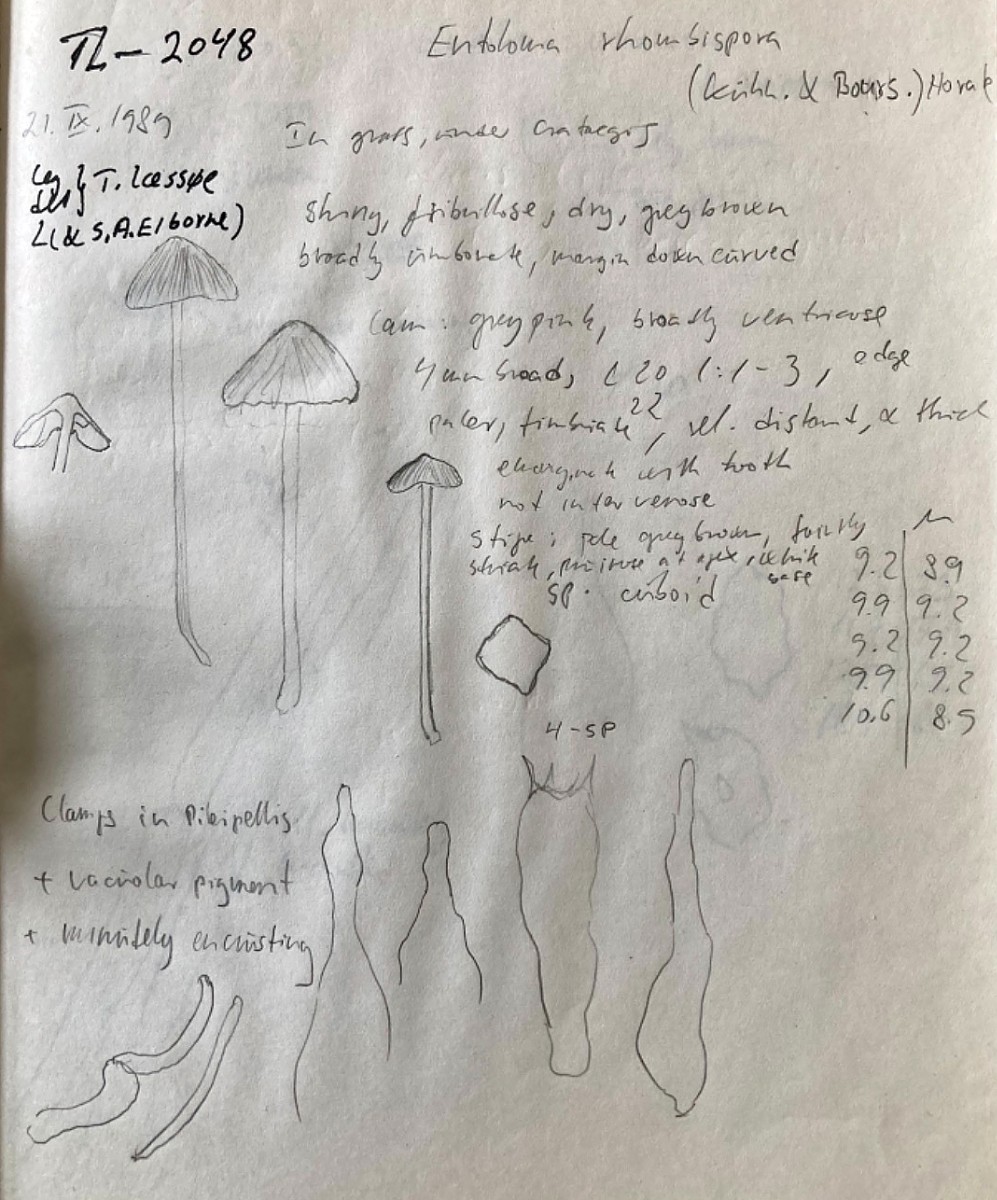 TL-2048
Entoloma rhombispora
(Kühn. & Bours.) Horak
21. IX. 1989
In grass, under Crataegus
leg
det } T. Læssøe
(& S.A. Elborne)
shiny, fibrillose, dry, grey brown
broadly umbonate, margin down curved
Lam: grey pink, broadly ventricose
4 mm broad, L 20 l: 1-3, edge
paler, fimbriate, rel. distant, thick
22
emarginate with tooth
not intervenose
stipe: pale grey brown, faintly
striate, pruinose at apex, white
base
sp. cuboid
μ
9.2 8.9
9.9 9.2
9.2 9.2
9.9 9.2
10.6 8.5
4-sp
Clamps in Pileipellis
+ vacuolar pigment
+ minutely encrusting